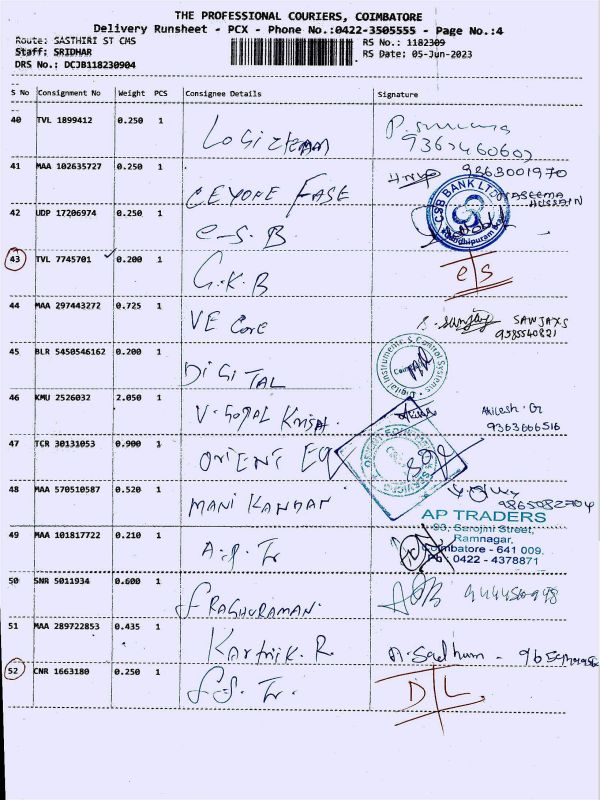 THE PROFESSIONAL COURIERS, COIMBATORE
Delivery Runsheet - PCX - Phone No.:0422-3505555 - Page No.:4
Route: SASTHIRI ST CMS RS No.: 1182309
Staff: SRIDHAR RS Date: 05-Jun-2023
DRS No.: DCJB118230904
S No Consignment No Weight PCS Consignee Details Signature
40 TVL 1899412 0.250 1
9362460602
41 MAA 102635727 0.250 1 CEYONE FASE 9363001970
NASEEMA
HUSSAIN
CSB BANK LTD
Gandhipuram
42 UDP 17206974 0.250 1 e-S.B
43 TVL 7745701 0.200 1 G.K.B
44 MAA 297443272 0.725 1 VE Care S. Sanjay SAWJAXS
9585540821
45 BLR 5450546162 0.200 1 DIGITAL
Digital Instruments & Control Systems
46 KMU 2526032 2.050 1 V. GOPAL Akilesh. G
9363666516
47 TCR 30131053 0.900 1 ORIENT EQ
48 MAA 570510587 0.520 1 MANI KANDAN
9865082704
AP TRADERS
93, Sarojni Street,
Ramnagar,
49 MAA 101817722 0.210 1 A.P. Tr Coimbatore - 641 009.
Ph: 0422 - 4378871
50 SNR 5011934 0.600 1 S RAGHURAMAN.
51 MAA 289722853 0.435 1 Karthik. R
52 CNR 1663180 0.250 1 S.S. Tr. D L